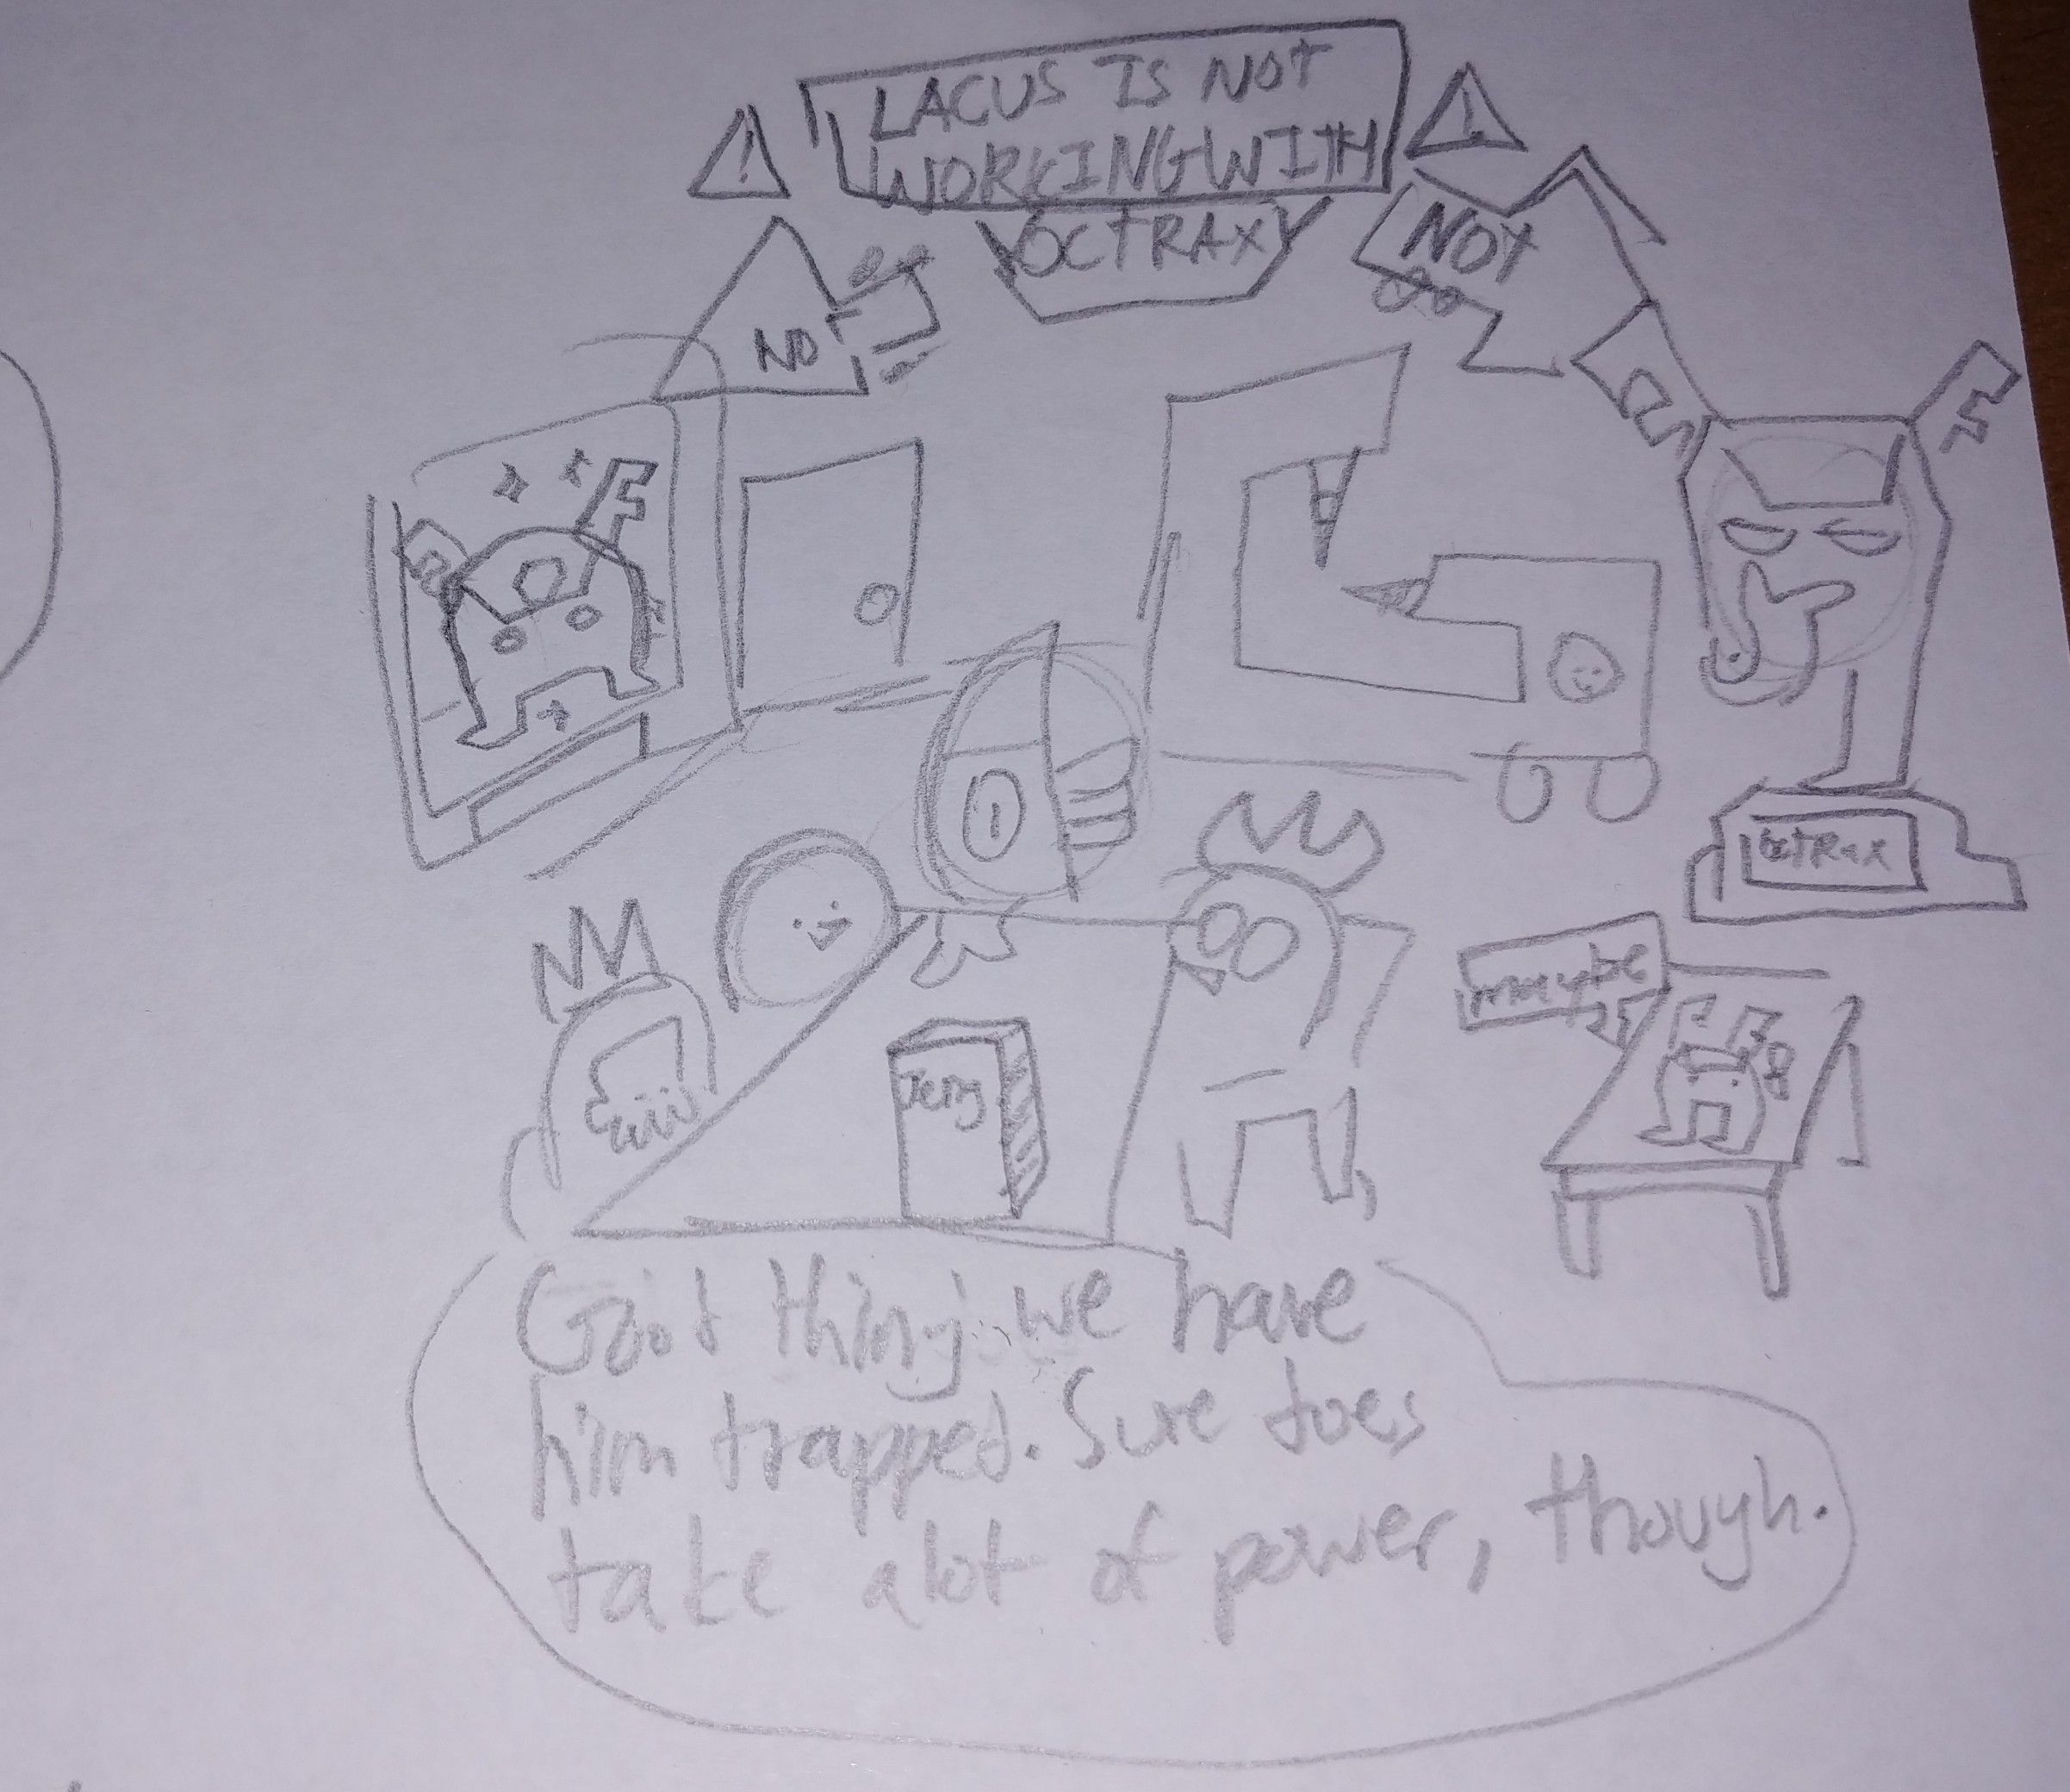 LACUS IS NOT
WORKING WITH
OCTRAX
NOT
NO
OCTRAX
maybe
Good thing we have
him trapped. Sure does
take alot of power, though.